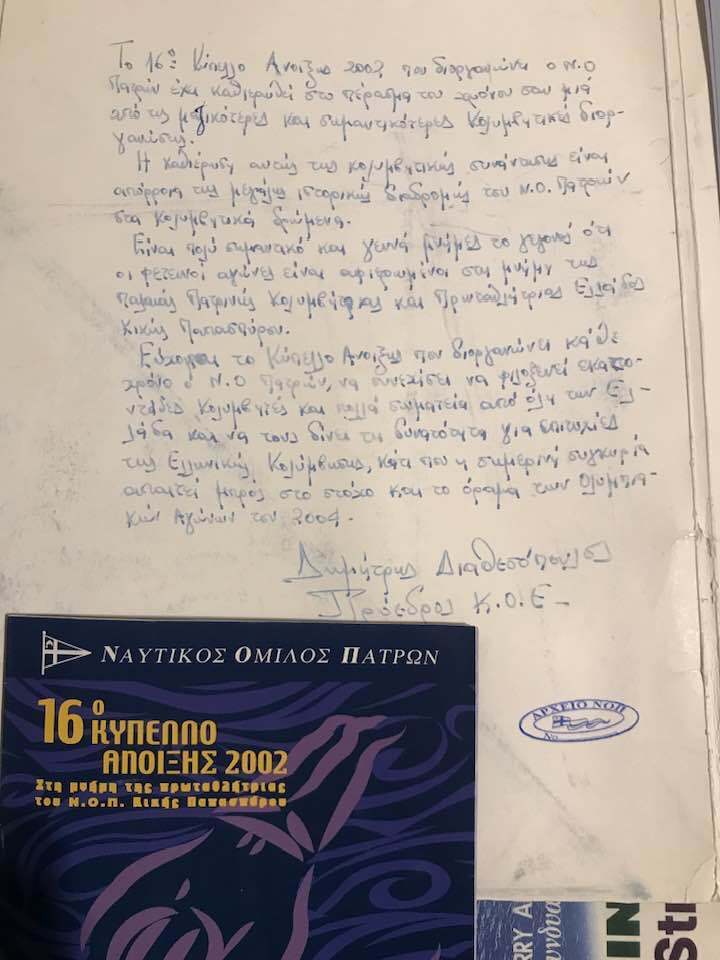 Το 16ο Κύπελλο Ανοιξης 2002 που διοργανώνει ο Ν.Ο
Πατρών έχει καθιερωθεί στο πέρασμα του χρόνου σαν μιά
από τις μαζικότερες και σημαντικότερες Κολυμβητικές διορ-
γανώσεις.
Η καθιέρωση αυτής της κολυμβητικής συνάντησης είναι
απόρροια της μεγάλης ιστορικής διαδρομής του Ν.Ο. Πατρών
στα Κολυμβητικά δρώμενα.
Είναι πολύ σημαντικό και γεννά μνήμες το γεγονός ότι
οι φετεινοί αγώνες είναι αφιερωμένοι στη μνήμη της
παλαιάς Πατρινής Κολυμβήτριας και Πρωταθλήτριας Ελλάδος
Κικής Παπασπύρου.
Εύχομαι το Κύπελλο Ανοιξης που διοργανώνει κάθε
χρόνο ο Ν.Ο Πατρών, να συνεχίσει να φιλοξενεί εκατο-
ντάδες Κολυμβητές και πολλά σωματεία από όλη την Ελ-
λάδα και να τους δίνει τη δυνατότητα για επιτυχίες
της Ελληνικής Κολύμβησης, κάτι που η σημερινή συγκυρία
απαιτεί μπρός στο στόχο και το όραμα των Ολυμπια-
κών Αγώνων του 2004.
Δημήτρης Διαθεσόπουλος
Πρόεδρος Κ.Ο.Ε-
ΑΡΧΕΙΟ ΝΟΠ
Νο
ΝΑΥΤΙΚΟΣ ΟΜΙΛΟΣ ΠΑΤΡΩΝ
16ο ΚΥΠΕΛΛΟ
ΑΝΟΙΞΗΣ 2002
Στη μνήμη της πρωταθλήτριας
του Ν.Ο.Π. Κικής Παπασπύρου
RRY A
υνδυα
IN
Sti